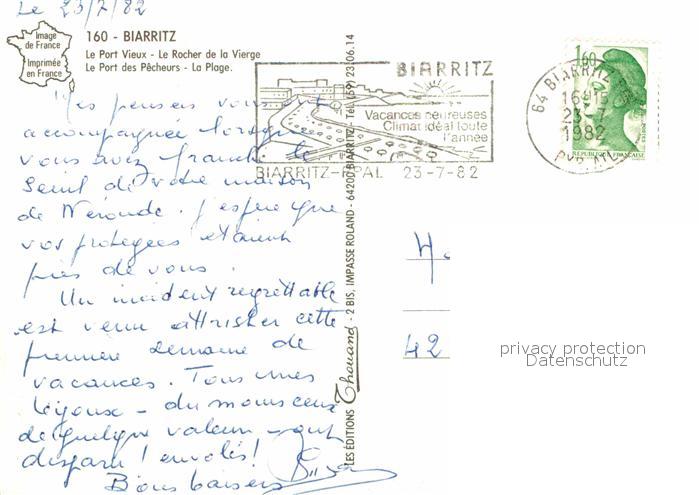 Le 23/7/82
Image
de France
Imprimée
en France
160 - BIARRITZ
Le Port Vieux - Le Rocher de la Vierge
Le Port des Pêcheurs - La Plage.
Mes pensées vous ont
accompagnée lorsque
vous avez franchi le
seuil de votre maison
de Néronde. J'espère que
vos protégées étaient
près de vous.
Un incident regrettable
est venu attrister cette
première semaine de
vacances. Tous mes
bijoux - du moins ceux
de quelque valeur - ont
disparu ! envolés !
Bons baisers
LES EDITIONS Thouand - 2 BIS, IMPASSE ROLAND - 64200 BIARRITZ - Tél. (59) 23.06.14
BIARRITZ
Vacances heureuses
Climat idéal toute
l'année
BIARRITZ-PPAL 23-7-82
64 BIARRITZ
16H
23-
1982
1,60
REPUBLIQUE FRANÇAISE
42
privacy protection
Datenschutz